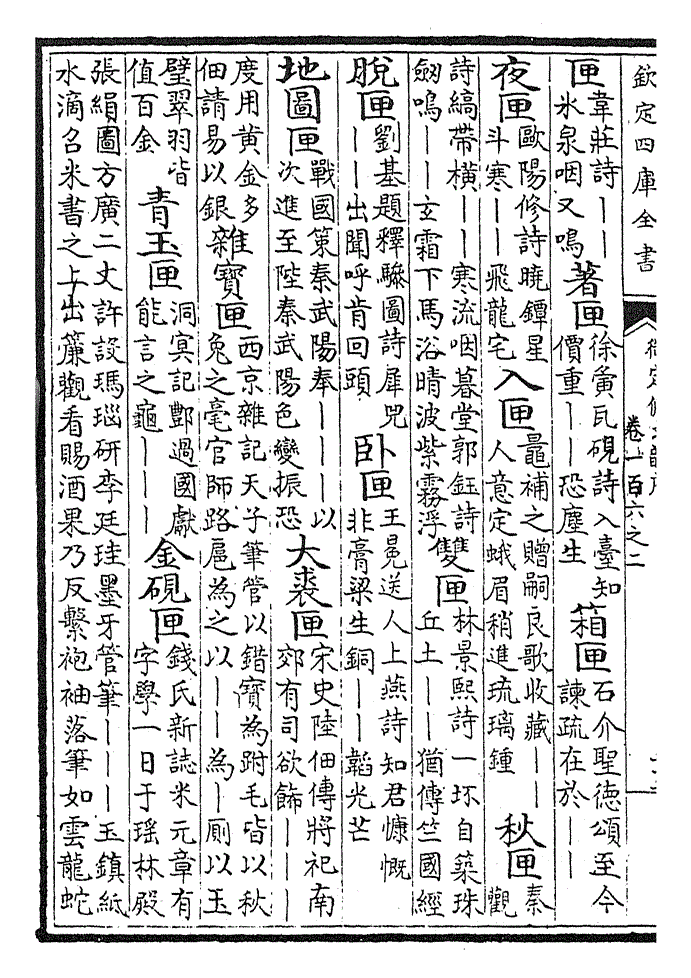 欽定四庫全書
御定佩文韻府
卷一百六之二
匣韋莊詩｜｜冰泉咽又鳴 著匣徐黃瓦硯詩入臺知價重｜｜恐塵生 箱匣石介聖德頌至今諫疏在於｜｜
夜匣歐陽修詩曉鐔星斗寒｜｜飛龍宅 入匣鼂補之贈嗣良歌收藏｜｜人意定蛾眉稍進琉璃鍾 秋匣秦觀
詩縞帶橫｜｜寒流咽暮堂郭鈺詩劒鳴｜｜玄霜下馬浴晴波紫霧浮 雙匣林景熙詩一坏自築珠丘土｜｜猶傳竺國經
脫匣劉基題釋驂圖詩犀兕｜｜出聞呼肯回頭 卧匣王冕送人上燕詩知君慷慨非膏粱生銅｜｜韜光芒
地圖匣戰國策秦武陽奉｜｜｜以次進至陛秦武陽色變振恐 大裘匣宋史陸佃傳將祀南郊有司欲飾｜｜｜
度用黃金多佃請易以銀 雜寶匣西京雜記天子筆管以錯寶為跗毛皆以秋兔之毫官師路扈為之以｜｜為｜廁以玉
璧翠羽皆值百金 青玉匣洞冥記酆過國獻能言之龜｜｜｜ 金硯匣錢氏新誌米元章有字學一日于瑤林殿
張絹圖方廣二丈許設瑪瑙研李廷珪墨牙管筆｜｜｜玉鎮紙水滴召米書之上出簾觀看賜酒果乃反繫袍袖落筆如雲龍蛇